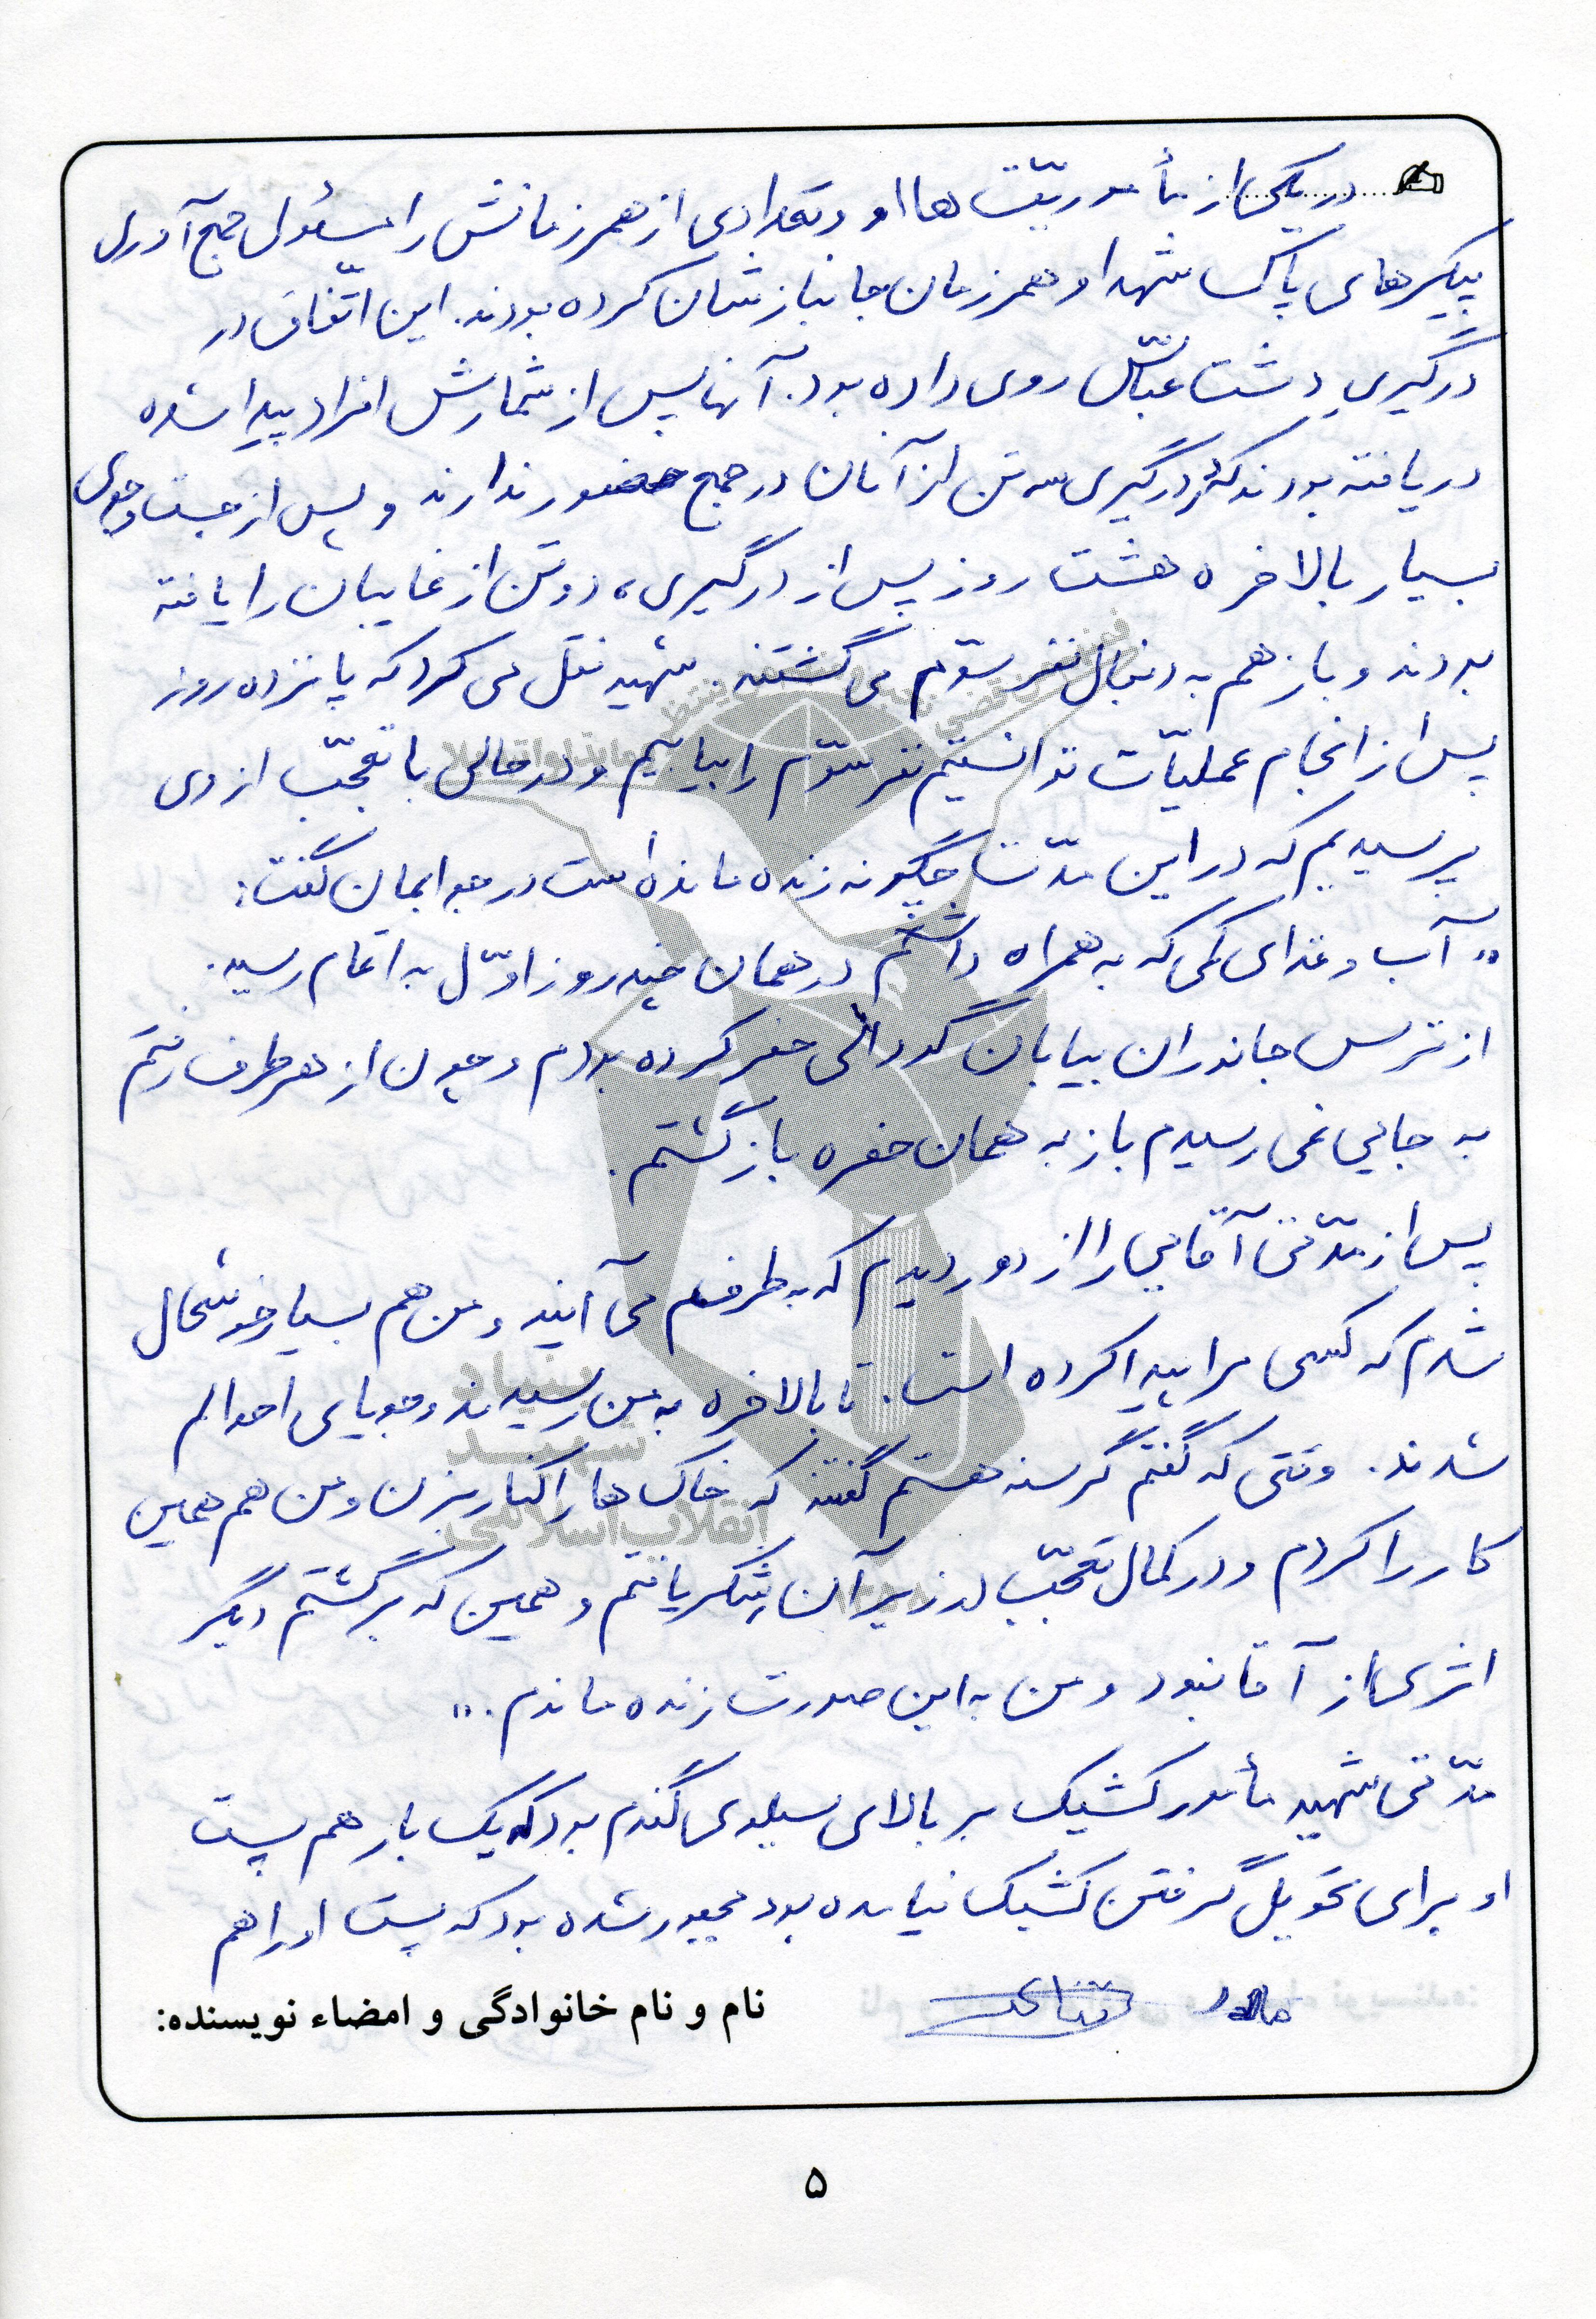 در یکی از مأموریّت ها او و تعدادی از همرزمانش را مسئول جمع آوری
پیکرهای پاک شهدا و همرزمان جانبازشان کرده بودند. این اتّفاق در
درگیریِ دشت عبّاس روی داده بود. آنها پس از شمارش افراد پیدا شده
دریافته بودند که در درگیری سه تن از آنان در جمع حضور ندارند و پس از جست و جوی
بسیار بالاخره هشت روز پس از درگیری، دو تن از غایبان را یافته
بودند و باز هم به دنبال نفر سوّم می گشتند. شهید نقل می کرد که پانزده روز
پس از انجام عملیّات توانستیم نفر سوّم را بیابیم و در حالی با تعجّب از وی
پرسیدیم که در این مدّت چگونه زنده مانده است در جوابمان گفت:
"آب و غذای کمی که به همراه داشتم در همان چند روز اوّل به اتمام رسید.
از ترس جانوران بیابان گودالی حفر کرده بودم و چون از هر طرف رفتم
به جایی نمی رسیدم باز به همان حفره بازگشتم.
پس از مدّتی آقایی را از دور دیدم که به طرفم می آیند و من هم بسیار خوشحال
شدم که کسی مرا پیدا کرده است. تا بالاخره به من رسیدند و جویای احوالم
شدند. وقتی که گفتم گرسنه هستم گفتند که خاک ها را کنار بزن و من هم همین
کار را کردم و در کمال تعجّب در زیر آن شکر یافتم و همین که برگشتم دیگر
اثری از آقا نبود و من به این صورت زنده ماندم."
مدّتی شهید مأمور کشیک بر بالای سیلوی گندم بود که یک بار هم پست
او برای تحویل گرفتن کشیک نیامده بود مجبور شده بود که پست او را هم
نام و نام خانوادگی و امضاء نویسنده:
بنیاد
شهید
انقلاب اسلامی
۵